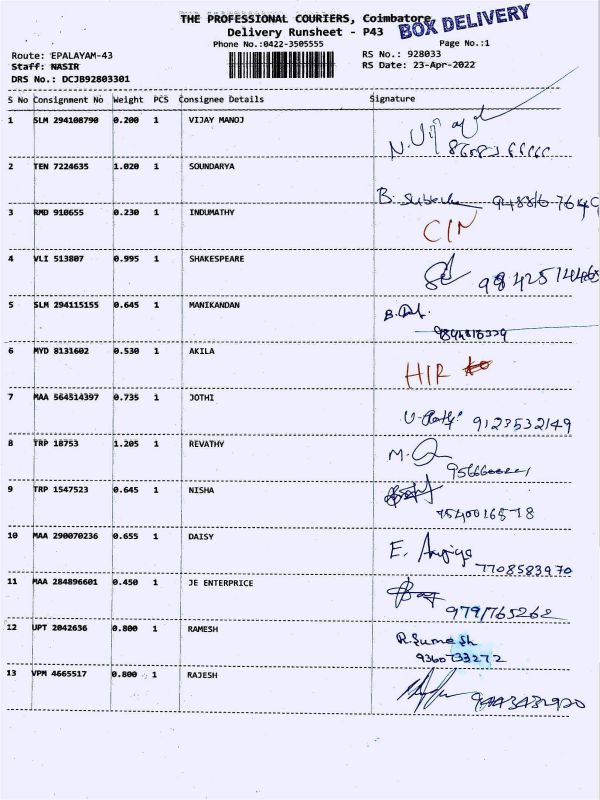 THE PROFESSIONAL COURIERS, Coimbatore,
BOX DELIVERY
Delivery Runsheet - P43
Phone No.:0422-3505555 Page No.:1
Route: EPALAYAM-43 RS No.: 928033
Staff: NASIR RS Date: 23-Apr-2022
DRS No.: DCJB92803301
S No Consignment No Weight PCS Consignee Details Signature
1 SLM 294108790 0.200 1 VIJAY MANOJ
2 TEN 7224635 1.020 1 SOUNDARYA
B.
3 RMD 910655 0.230 1 INDUMATHY
4 VLI 513807 0.995 1 SHAKESPEARE
5 SLM 294115155 0.645 1 MANIKANDAN
6 MYD 8131602 0.530 1 AKILA
7 MAA 564514397 0.735 1 JOTHI
9123532149
8 TRP 18753 1.205 1 REVATHY
M.
9 TRP 1547523 0.645 1 NISHA
7540016578
10 MAA 290070236 0.655 1 DAISY
E.
7708583970
11 MAA 284896601 0.450 1 JE ENTERPRICE
9791765262
12 UPT 2042636 0.800 1 RAMESH
R.Sumesh
9360733272
13 VPM 4665517 0.800 1 RAJESH